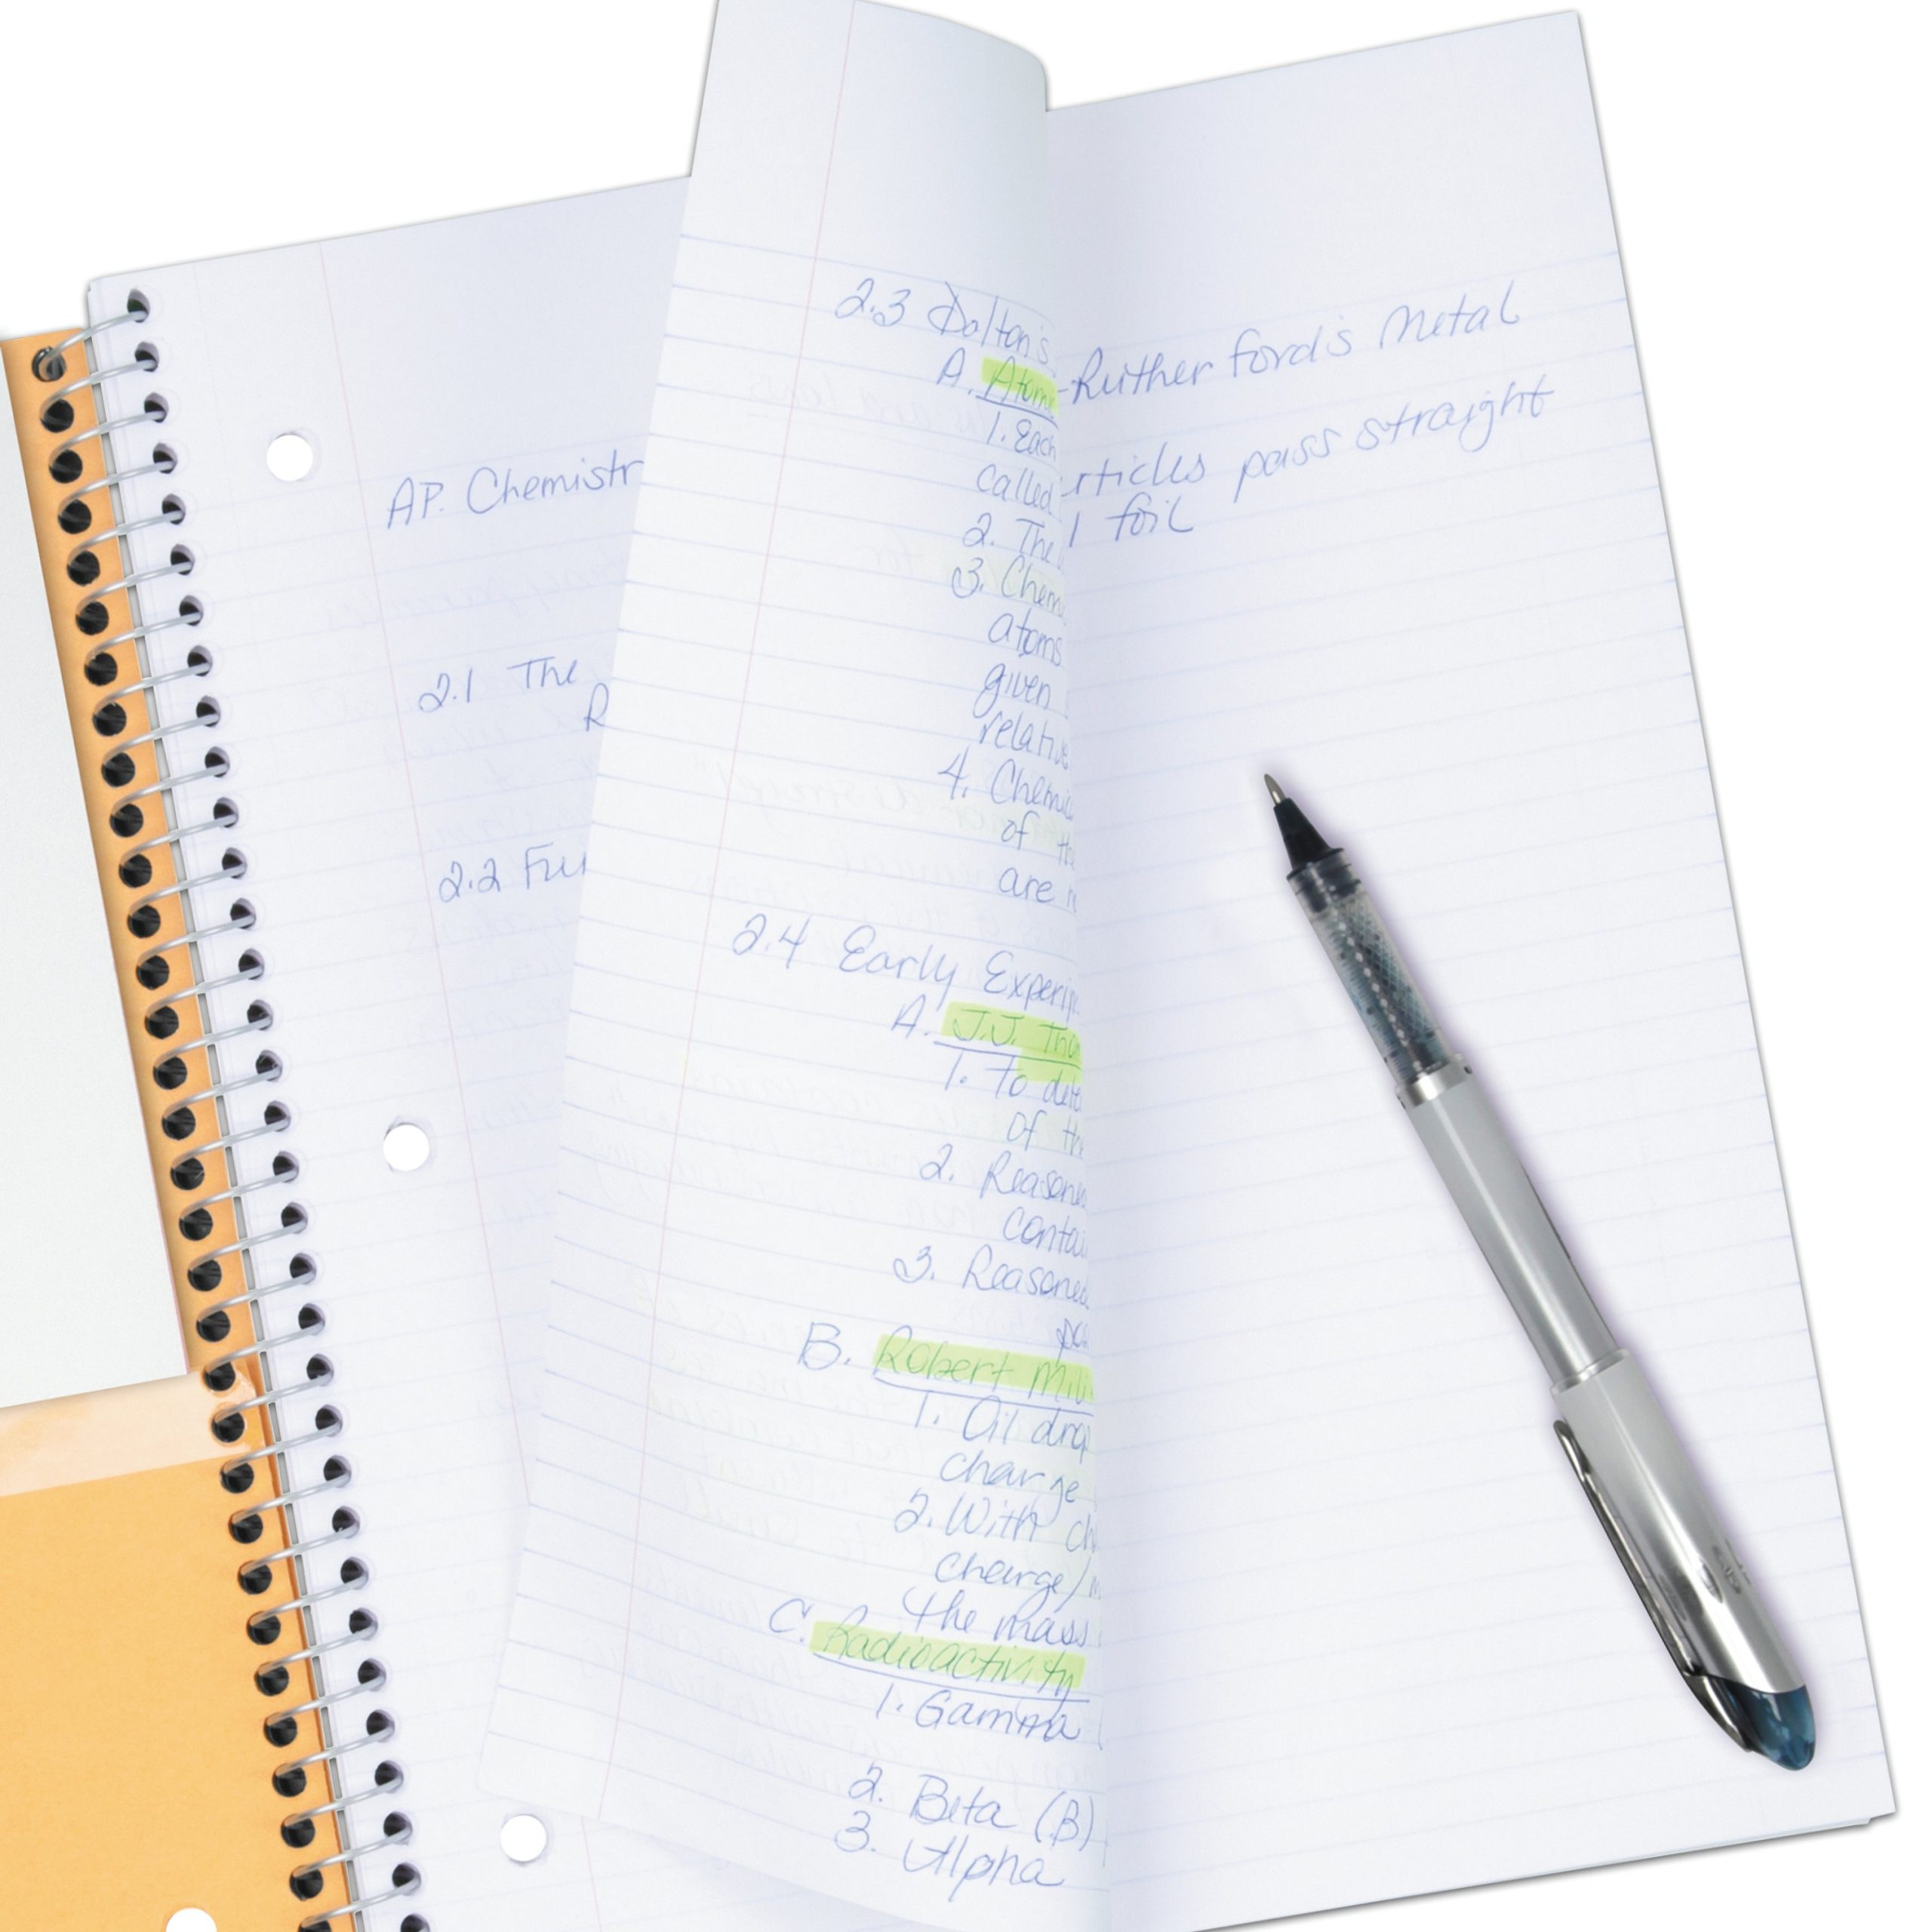 AP. Chemistr
2.1 The
R
2.2 Fu
2.3 Dalton's
A. Atomi
1. Each
called
2. The
3. Chem
atoms
given
relative
4. Chemic
of th
are
2.4 Early Experim
A. J.J. Tho
1. To dete
of the
2. Reasone
contai
3. Reasoned
pa
B. Robert Mili
1. Oil drop
charge
2. With ch
charge/m
the mass
C. Radioactivity
1. Gamma (
2. Beta (B)
3. Alpha
-Rutherford's Metal
rticles pass straight
l foil